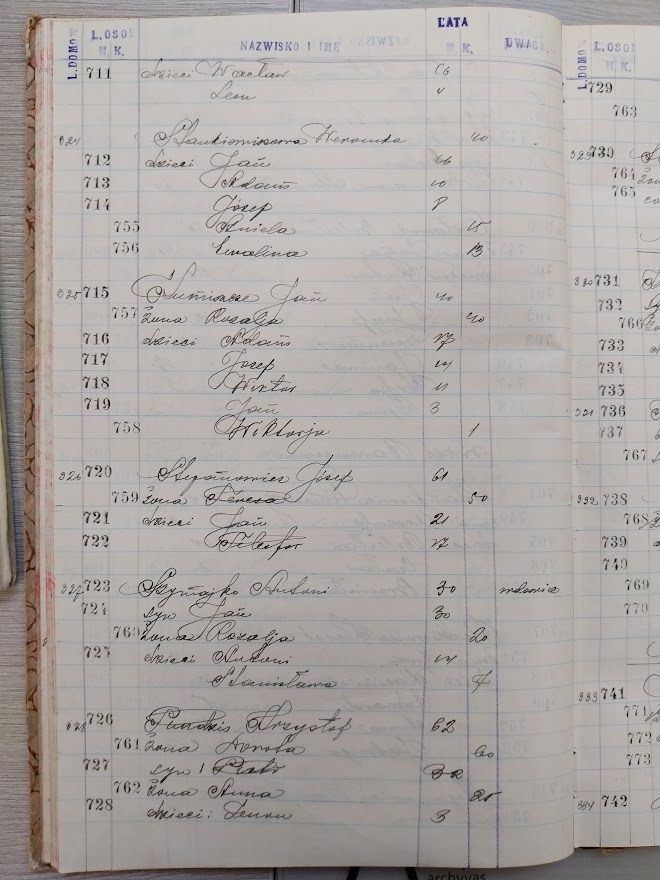 L. DOMÓW L. OSOB M. K. NAZWISKO I IMĘ LATA M. K. UWAGA.
711 dzieci Wacław 16
Leon 4
324 Stankiewiczowa Weronika 40
712 dzieci Jan 16
713 Adam 10
714 Józef 8
755 Aniela 15
756 Ewalina 13
325 715 Jan 40
757 żona Rozalja 40
716 dzieci Adam 17
717 Józef 14
718 Wiktor 11
719 Jan 3
758 Wiktorja 1
326 720 Stefanowicz Józef 61
759 żona Teresa 50
721 dzieci Jan 21
722 17
327 723 Szymajko Antoni 30 wdowiec
724 syn Jan 30
760 żona Rozalja 20
725 dzieci Antoni 14
Stanisława 7
328 726 Krzysztof 62
761 żona Dorota 60
727 syn Piotr 32
762 żona Anna 25
728 dzieci: Zenon 3
L. DOMÓW L. OSOB M. K.
729
763
329 730
764
765
330 731
732
766
733
734
735
331 736
737
767
332 738
768
739
740
769
770
333 741
771
772
773
334 742
archyvas